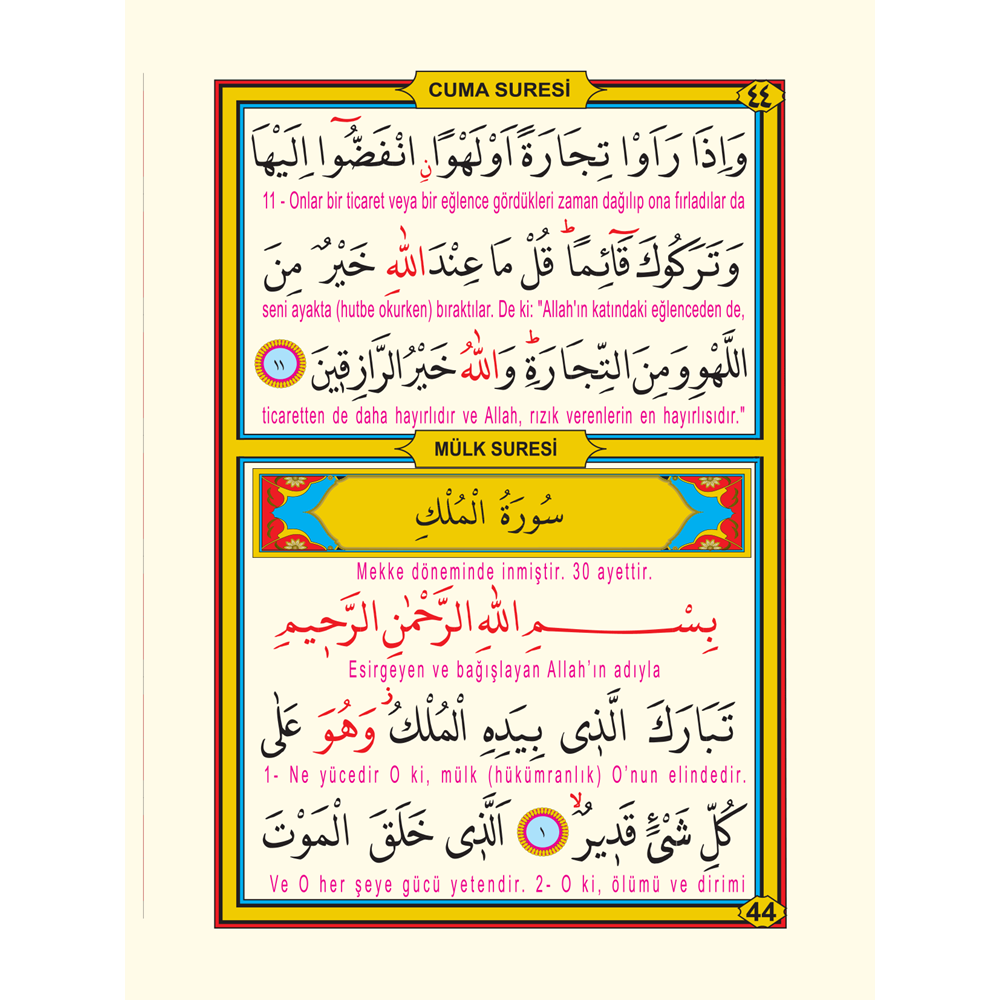 CUMA SURESİ
٤٤
وَاِذَا رَاَوْا تِجَارَةً اَوْ لَهْوًا ࣙنِ انْفَضُّٓوا اِلَيْهَا
11 - Onlar bir ticaret veya bir eğlence gördükleri zaman dağılıp ona fırladılar da
وَتَرَكُوكَ قَٓائِمًاۜ قُلْ مَا عِنْدَ اللّٰهِ خَيْرٌ مِنَ
seni ayakta (hutbe okurken) bıraktılar. De ki: "Allah'ın katındaki eğlenceden de,
اللَّهْوِ وَمِنَ التِّجَارَةِۜ وَاللّٰهُ خَيْرُ الرَّازِقٖينَ ١١
ticaretten de daha hayırlıdır ve Allah, rızık verenlerin en hayırlısıdır."
MÜLK SURESİ
سُورَةُ الْمُلْكِ
Mekke döneminde inmiştir. 30 ayettir.
بِسْمِ اللّٰهِ الرَّحْمٰنِ الرَّحٖيمِ
Esirgeyen ve bağışlayan Allah’ın adıyla
تَبَارَكَ الَّذٖي بِيَدِهِ الْمُلْكُۘ وَهُوَ عَلٰى
1- Ne yücedir O ki, mülk (hükümranlık) O’nun elindedir.
كُلِّ شَیْءٍ قَدٖيرٌۙ ١ اَلَّذٖي خَلَقَ الْمَوْتَ
Ve O her şeye gücü yetendir. 2- O ki, ölümü ve dirimi
44